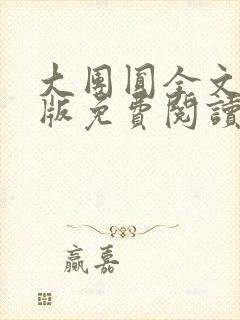 大團圓全文
版免費閱讀
贏嘉